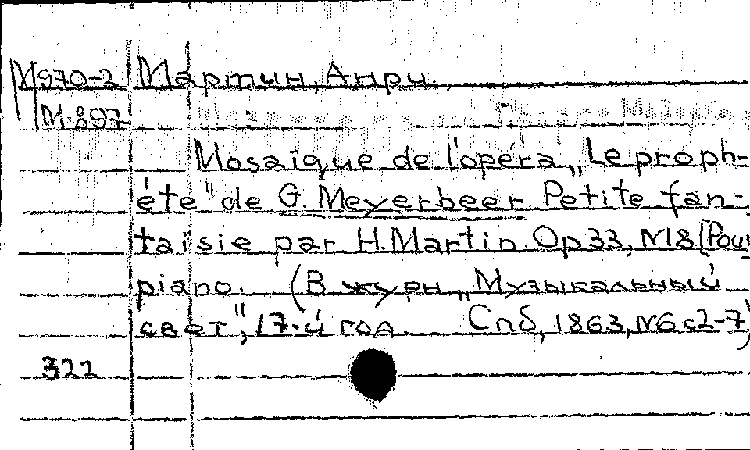 М970-2 Мартин, Анри.
М-897
Mosaique de l'opéra „Le proph-
ète" de G. Meyerbeer Petite fan-
taisie par H. Martin. Op 33, N18 (Pour
piano. (В журн „Музыкальный
свет", 17-й год. Спб, 1863, N6 с2-7)
322